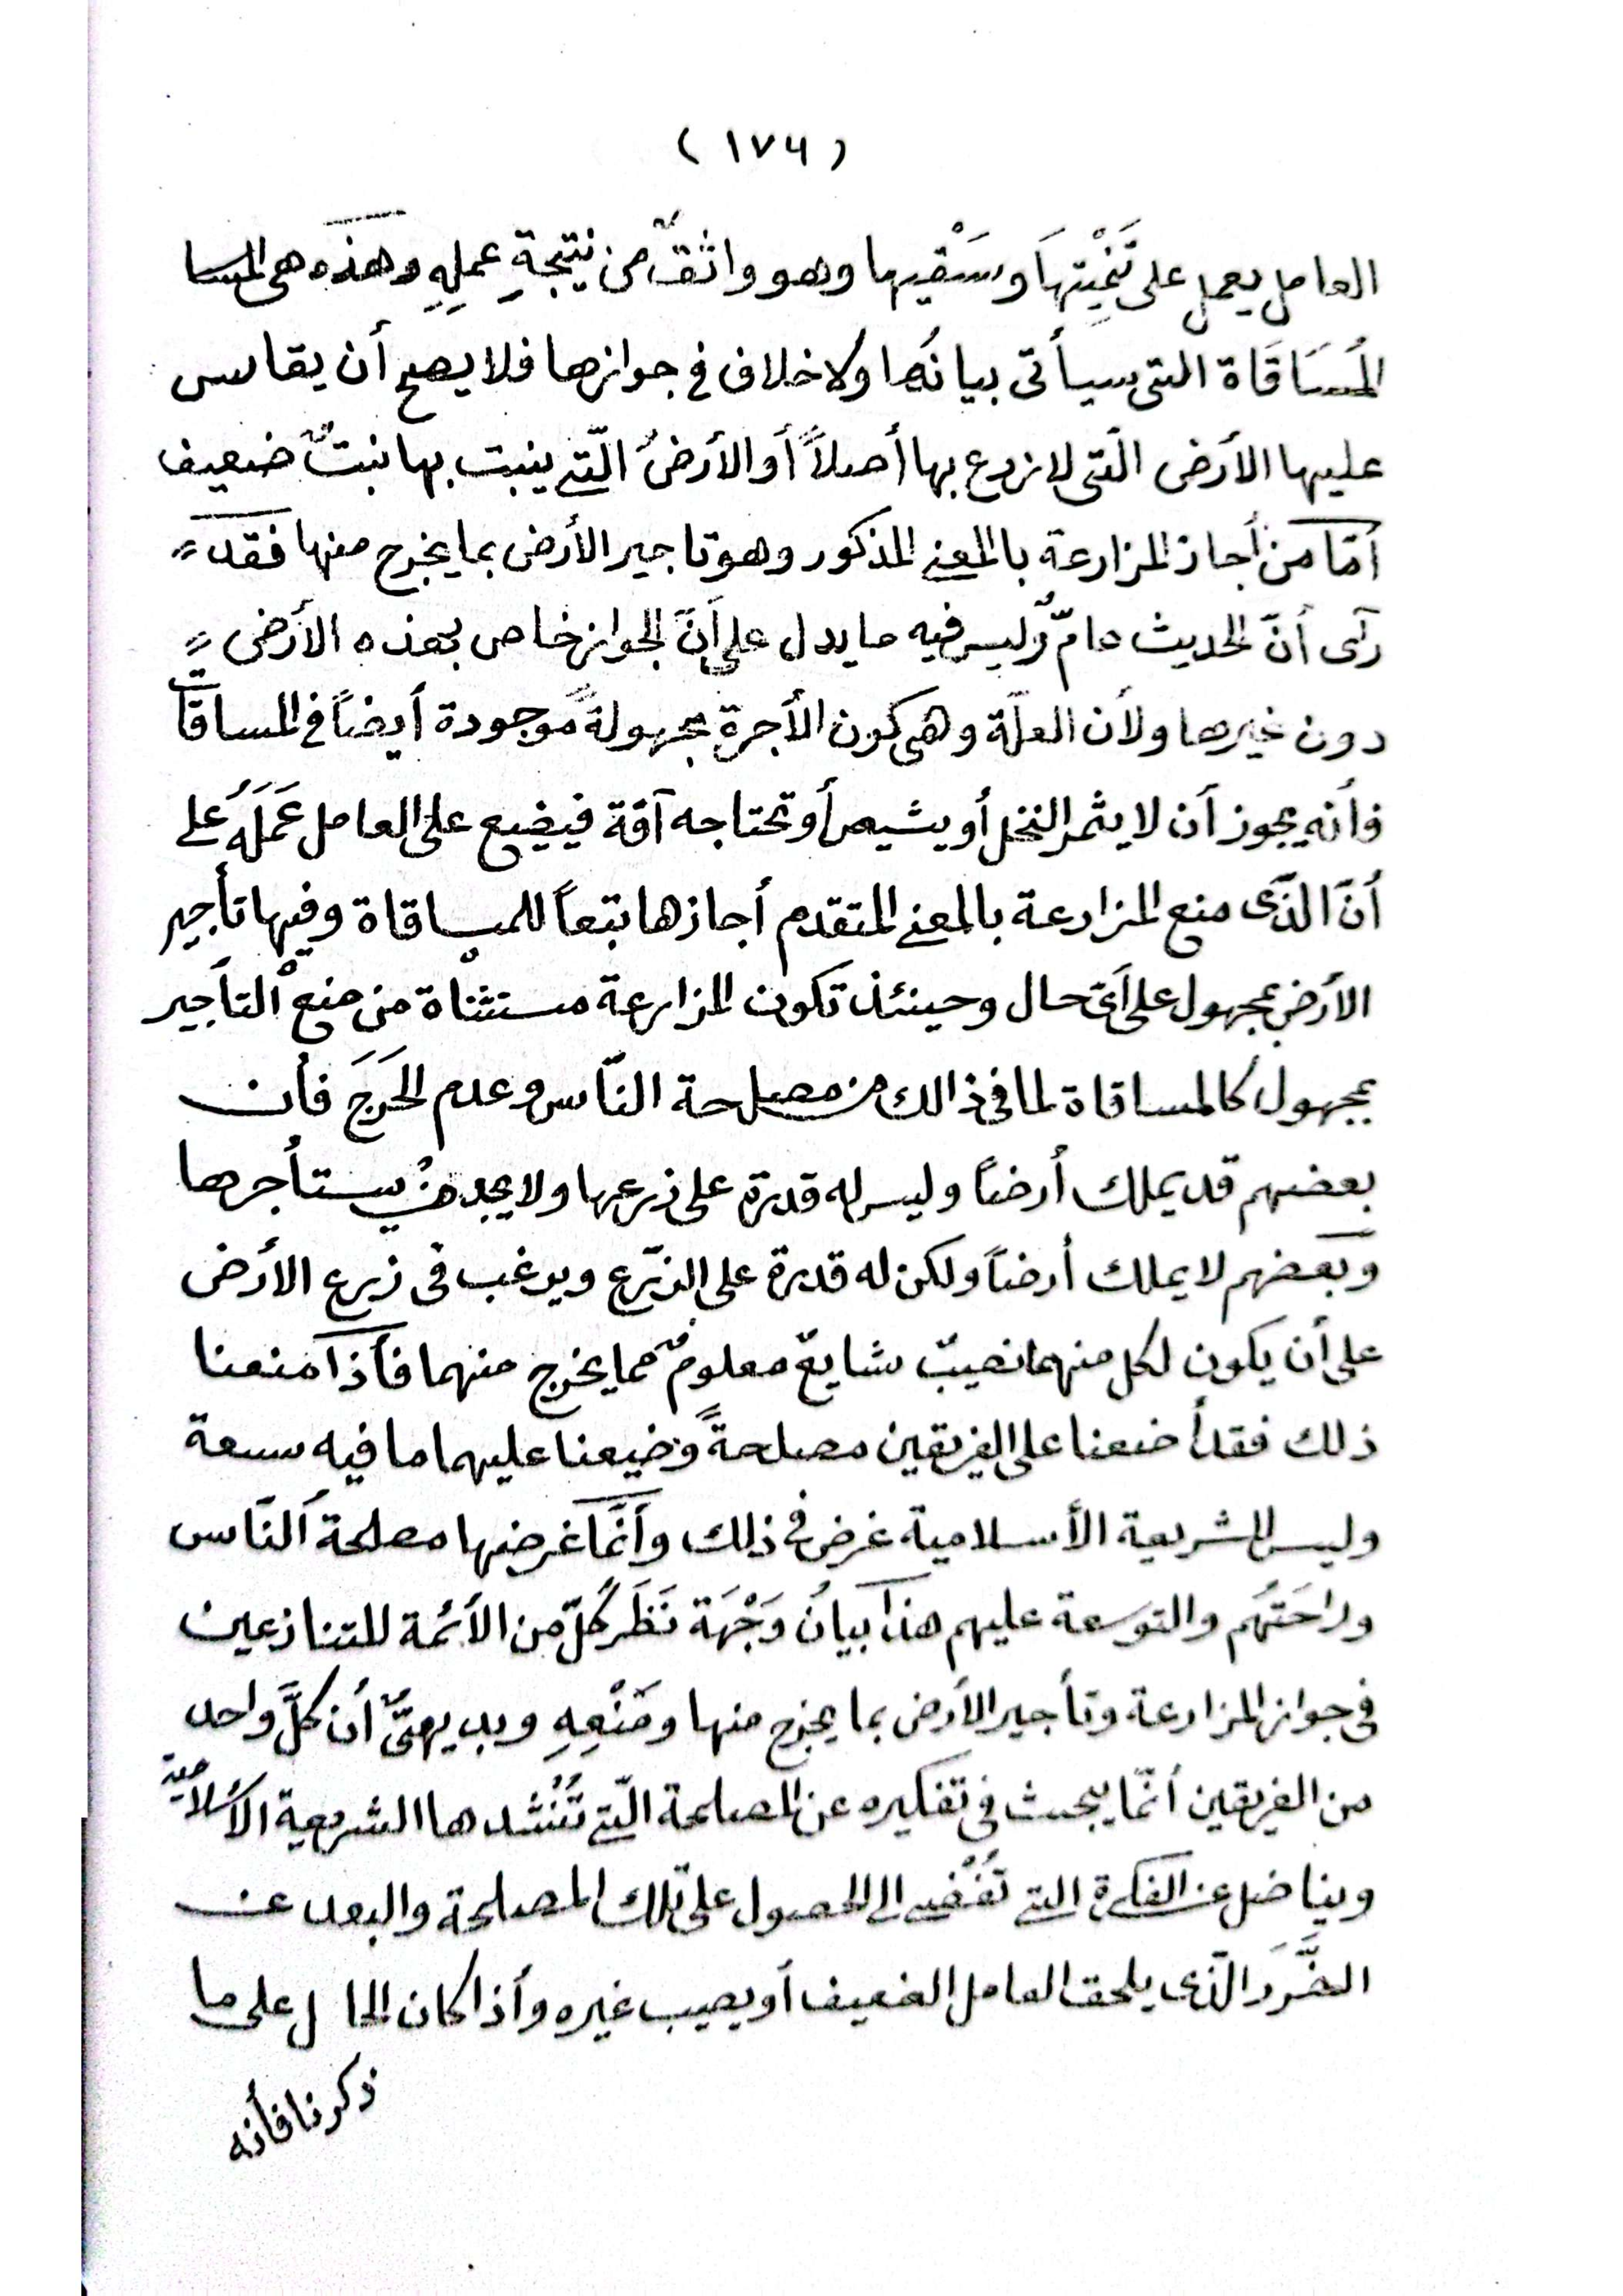 (١٧٦)
العامل يعمل على تَنْمِيَتِهَا وسَقْيِها وهو واثقٌ من نتيجةِ عملِهِ وهذه هى المسا
المُسَاقَاة التى سيأتى بيانُها ولا خلاف فى جوازها فلا يصح أن يقاس
عليها الأرض الّتى لا زرع بها أصلاً أو الأرضُ الّتى ينبت بها نبتٌ ضعيف
أمّا من أجاز المزارعة بالمعنى المذكور وهو تاجير الأرض بما يخرج منها فقد
رآى أنّ الحديث عامٌّ وليس فيه ما يدل على أنّ الجواز خاص بهذه الأرض
دون غيرها ولأن العلّة وهى كون الأجرة مجهولةً موجودة أيضاً فى المساقات
فأنه يجوز أن لا يثمر النخل أو يشيص أو تحتاجه آفة فيضيع على العامل عَمَلَهُ على
أنّ الذّى منع المزارعة بالمعنى المتقدم أجازها تبعاً للمساقاة وفيها تأجير
الأرض بمجهول على أىّ حال وحينئذ تكون المزارعة مستثناة من منع التأجير
بمجهول كالمساقاة لما فى ذالك من مصلحة النّاس وعدم الحَرَجَ فأن
بعضهم قد يملك أرضاً وليس له قدرة على زرعها ولا يجد من يستأجرها
وبعضهم لا يملك أرضاً ولكن له قدرة على الزّرع ويرغب فى زرع الأرض
على أن يكون لكل منهما نصيبٌ شايعٌ معلومٌ مما يخرج منهما فأذا منعنا
ذلك فقد أضعنا على الفريقين مصلحةً وضيعنا عليهما ما فيه سعة
وليس للشريعة الأسلامية غرض فى ذلك وأنّما غرضها مصلحة النّاس
وراحَتَهُم والتوسعة عليهم هذا بيانُ وَجْهَة نَظَر كُلّ من الأئمة للتنازعين
فى جواز المزارعة وتأجير الأرض بما يخرج منها ومَنْعِهِ وبديهىٌّ أن كلَّ واحد
من الفريقين أنّما يبحث فى تفكيره عن المصلحة الّتى تُنْشُدها الشريعية الأسلاميّة
ويناضل عن الفكرة التى تُفْضى الى الحصول على تلك المصلحة والبعد عن
الضَّرَر الّذى يلحق العامل الضعيف أو يصيب غيره وأذا كان الحال على ما
ذكرنا فأنه